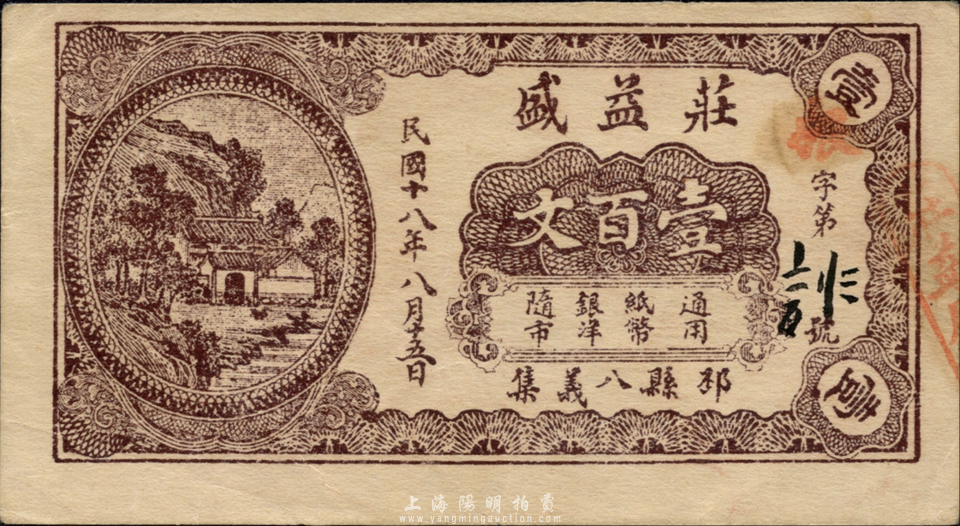 莊益盛
壹百文
通用
紙幣
銀洋
隨市
邳縣八義集
民國十八年八月十五日
字第
號
壹
上海陽明拍賣
www.yangmingauction.com